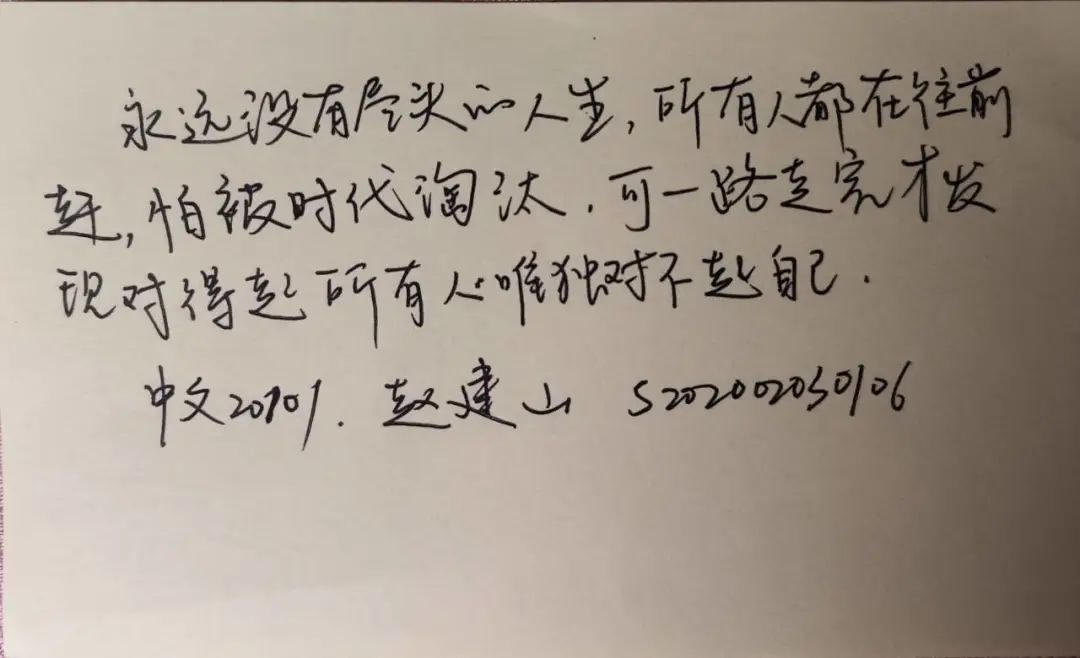 永远没有尽头的人生，所有人都在往前
赶，怕被时代淘汰．可一路走完才发
现对得起所有人唯独对不起自己．
中文20101．赵建山 S202002030106